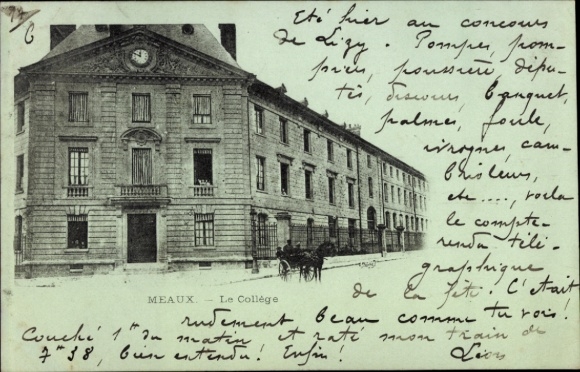 Eté hier au concours
de Lizy. Pompes, pom-
piers, poussière, dépu-
tés, discours, banquet,
palmes, foule,
ivrognes, cam-
brioleurs,
etc...., voila
le compte-
rendu télé-
graphique
de la fête! C'était
MEAUX. — Le Collège
rudement beau comme tu vois!
Couché 1h du matin et raté mon train de
7h38, bien entendu! Enfin!